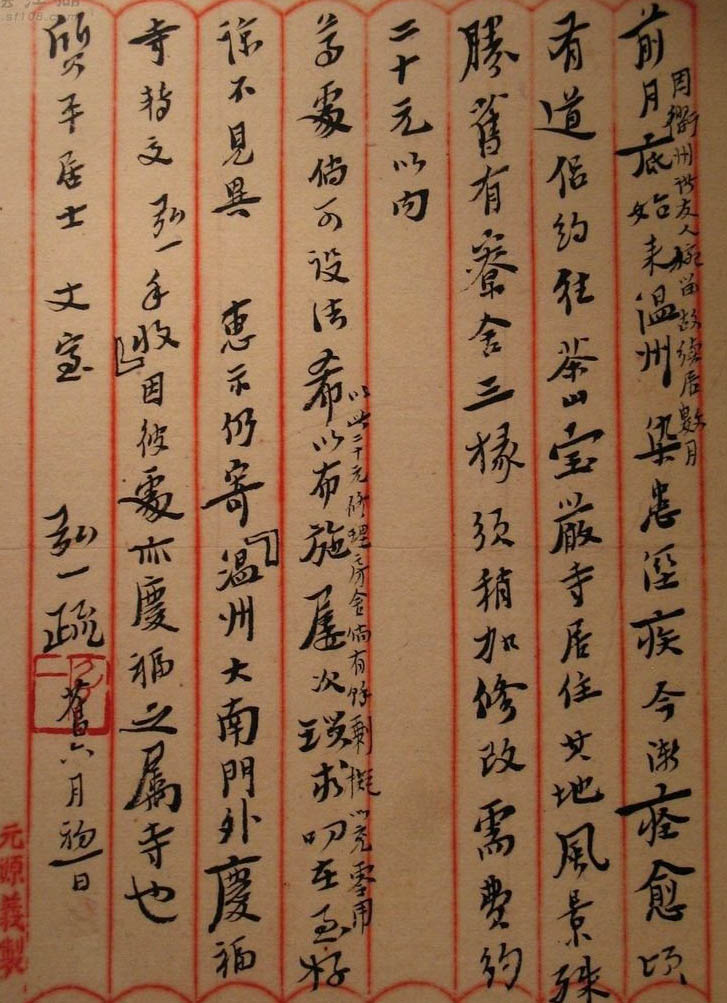 前月底始来温州染患溼疾今渐痊愈顷
因衢州诸友人挽留故续居数月
有道侣约往茶山宝严寺居住其地風景殊
勝舊有寮舍三椽须稍加修改需费约
二十元以内
尊處倘可设法希以布施屡次琐求叨在至好
以此二十元修理房舍倘有馀剩拟以充零用
谅不見異 惠示仍寄『温州大南門外慶福
寺转交弘一手收』因彼處亦慶福之属寺也
質平居士 丈室
弘一疏
舊六月初一日
元源義製
sf108.com